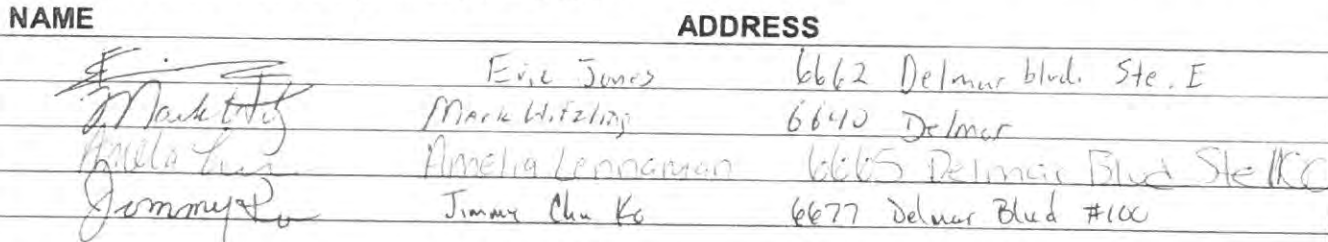 NAME ADDRESS
Eric Jones 6662 Delmar blvd. Ste. E
Mark Witzling 6640 Delmar
Amelia Lennaman 6665 Delmar Blvd Ste
Jimmy Jimmy Chu Ko 6677 Delmar Blvd #100